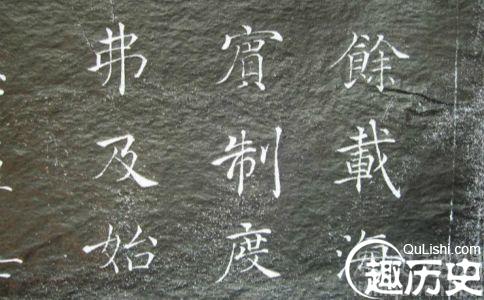 餘載
賓制度
弗及始
QuLishi.com
趣历史